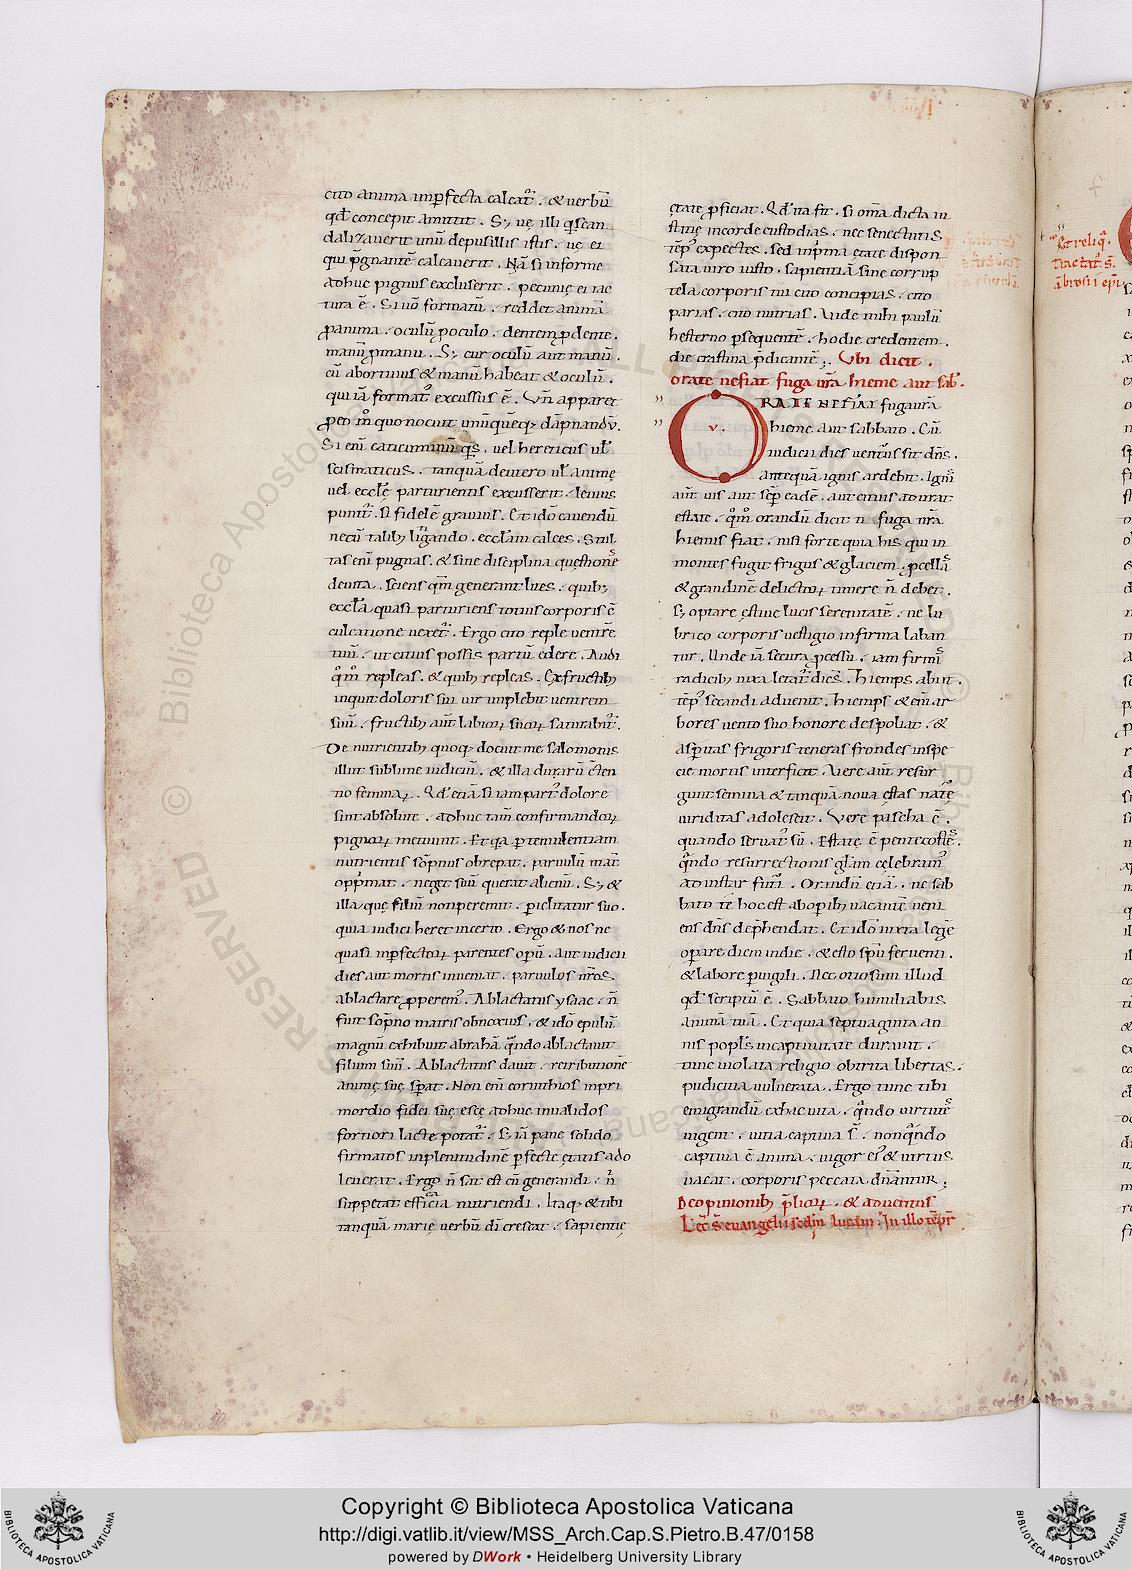 cito anima inp̄fecta calcat᷑. & verbū
qd̄ concepit amittit. Sꝫ uę illi q̇ scan
dalizauerit unū de pusillis istis. uę ei
qui p̄gnantē calcauerit. Nā si informe
adhuc pignus excluserit. pecunię ei iac
tura ē. Si uō formatū. reddet animā
ꝓ anima. oculū ꝓ oculo. dentem ꝓ dente.
manū ꝓ manu. Sꝫ cur oculū aut manū.
cū abortiuus & manū habeat & oculū.
qui iā format᷒ excussus ē. Vn̄ apparet
ꝓ eo
in quo nocuit unūquēqꝫ dāpnandū.
Si enī caticuminū q̇s. uel hereticus ul̄
scismaticus. tanquā de utero ul̄ animę
uel eccl̄ę parturientis excusserit. leuius
punit᷑. si fidelē grauius. Et idō cauendū
ne cū talibꝫ litigando. eccl̄iam calces. Stul
tas enī pugnas. & sine disciplina quęstionēs
deuita. sciens qm̄ generant lites. quibꝫ
eccl̄a quasi parturiens totius corporis ē
culcatione uexet᷑. Ergo cito reple uentrē
tuū. ut citius possis partū edere. Audi
q̊m̊ repleas. & quibꝫ repleas. Ex fructibꝫ
inquit doloris sui uir implebit uentrem
suū. fructibꝫ aūt labioꝝ suoꝝ saturabit᷑.
De nutrientibꝫ quoqꝫ docuit me salomonis
illut sublime iudiciū. & illa duarū c̄ten
tio feminaꝝ. Qd̄ etiā si iam part᷒ dolore
sint absolute. adhuc tam̄ confirmandoꝝ
pignoꝝ metuunt. Et q̇a p̱ temulentiam
nutrientis sōpnus obrepat. paruulū mat̄
opp̄mat. neget suū querat alienū. Sꝫ &
illa quę filiū non peremit. p̱iclitatur suo.
quia iudici heret incerto. Ergo & nos ne
quasi inp̱fectoꝝ parentes opū. aut iudicii
dies aut mortis inueniat. paruulos nr̄os
ablactare ꝓperem᷒. Ablactatus ysaac. n̄
fuit sōpno matris obnoxius. & idō epulū
magnū exhibuit abrahā q̄ndo ablactauit
filium suū. Ablactatus dauit. retributionē
animę suę sp̱at. Non enī corinthios in pri
mordio fidei suę escę adhuc inualidos
fortiori lacte potat᷑. sꝫ iā pane solido
firmatos in plenitudinē p̱fecte ętatis ado
leuerat. Ergo n̄ sat est cū generandi. n̄
suppetat efficia nutriendi. Itaqꝫ & tibi
tanquā marię verbū dī crescat. sapientię
ętate ꝓficiat. Qd̄ ita fit. si om̄a dicta iu
stitię in corde custodias. nec senectutis
tēp᷒ expectes. sed in p̄ma ętate dispon
sata uiro iusto. sapientiā sine corrup
tela corporis tui cito concipias. cito
parias. cito nutrias. Unde mihi paulū
hesterno p̱sequentē. hodie credentem.
die crastina p̄dicantē. Vbi dicit.
Orate ne fiat fuga ur̄a hieme aut sab̄.
ORATE NE FIAT fuga ur̄a
v. hieme aut sabbato. Cū
iudicii dies uentur᷒ sit dn̄s.
antequā ignis ardebit. Ignis
aūt uis aut sēp eadē. aut citius adurat
estate. q̊m̊ orandū dicit n̄ fuga nr̄a
hiemis fiat. nisi forte quia his qui in
montes fugit frigus & glaciem. ꝓcellas
& grandinē delictoꝝ timere n̄ debet.
Sꝫ optare ęstiue lucis serenitatē. ne lu
brico corporis uestigio infirma laban
tur. Unde iā secura ꝓcessu. iam firmis
radicibꝫ uita letat᷑ dicēs. hiemps abiit.
tēp᷒ secandi aduenit. hiemps & enī ar
bores uento suo honore despoliat. &
asp̱itas frigoris teneras frondes in spe
cie mortis interficit. Vere aūt resur
gunt semina & tanquā noua ęstas natę
uiriditas adolescit. Vere pascha ē.
quando seruat᷒ sū. Estate ē pentecostes.
q̄ndo resurrectionis gl̄am cęlebram᷒
ad instar futuri. Orandū etiā. ne sab
bato te hoc est ab opib̄ꝫ uacantē ueni
ens dn̄s dep̄hendat. Et idō iuxta legē
operare diem in die. & esto sp̄u feruenti.
& labore p̱uigili. Nec otiosum illud
qd̄ scriptū ē. Sabbato humiliabis
animā tuā. Et quia septuaginta an
nis popl̄s in captiuitate durauit.
tunc uiolata religio obtrita libertas.
pudicitia uulnerata. Ergo tunc tibi
emigrandū ex hac uita. q̄ndo uirtutes
uigent. uitia captiua s̄. non q̄ndo
captiua ē anima. uigor ei᷒ & uirtus
uacat. corporis peccata dn̄antur.
De opinionibꝫ p̄lioꝝ. & aduentus
Lec̄ s̄ euangelii scd̄m lucam. In illo tēpr̄